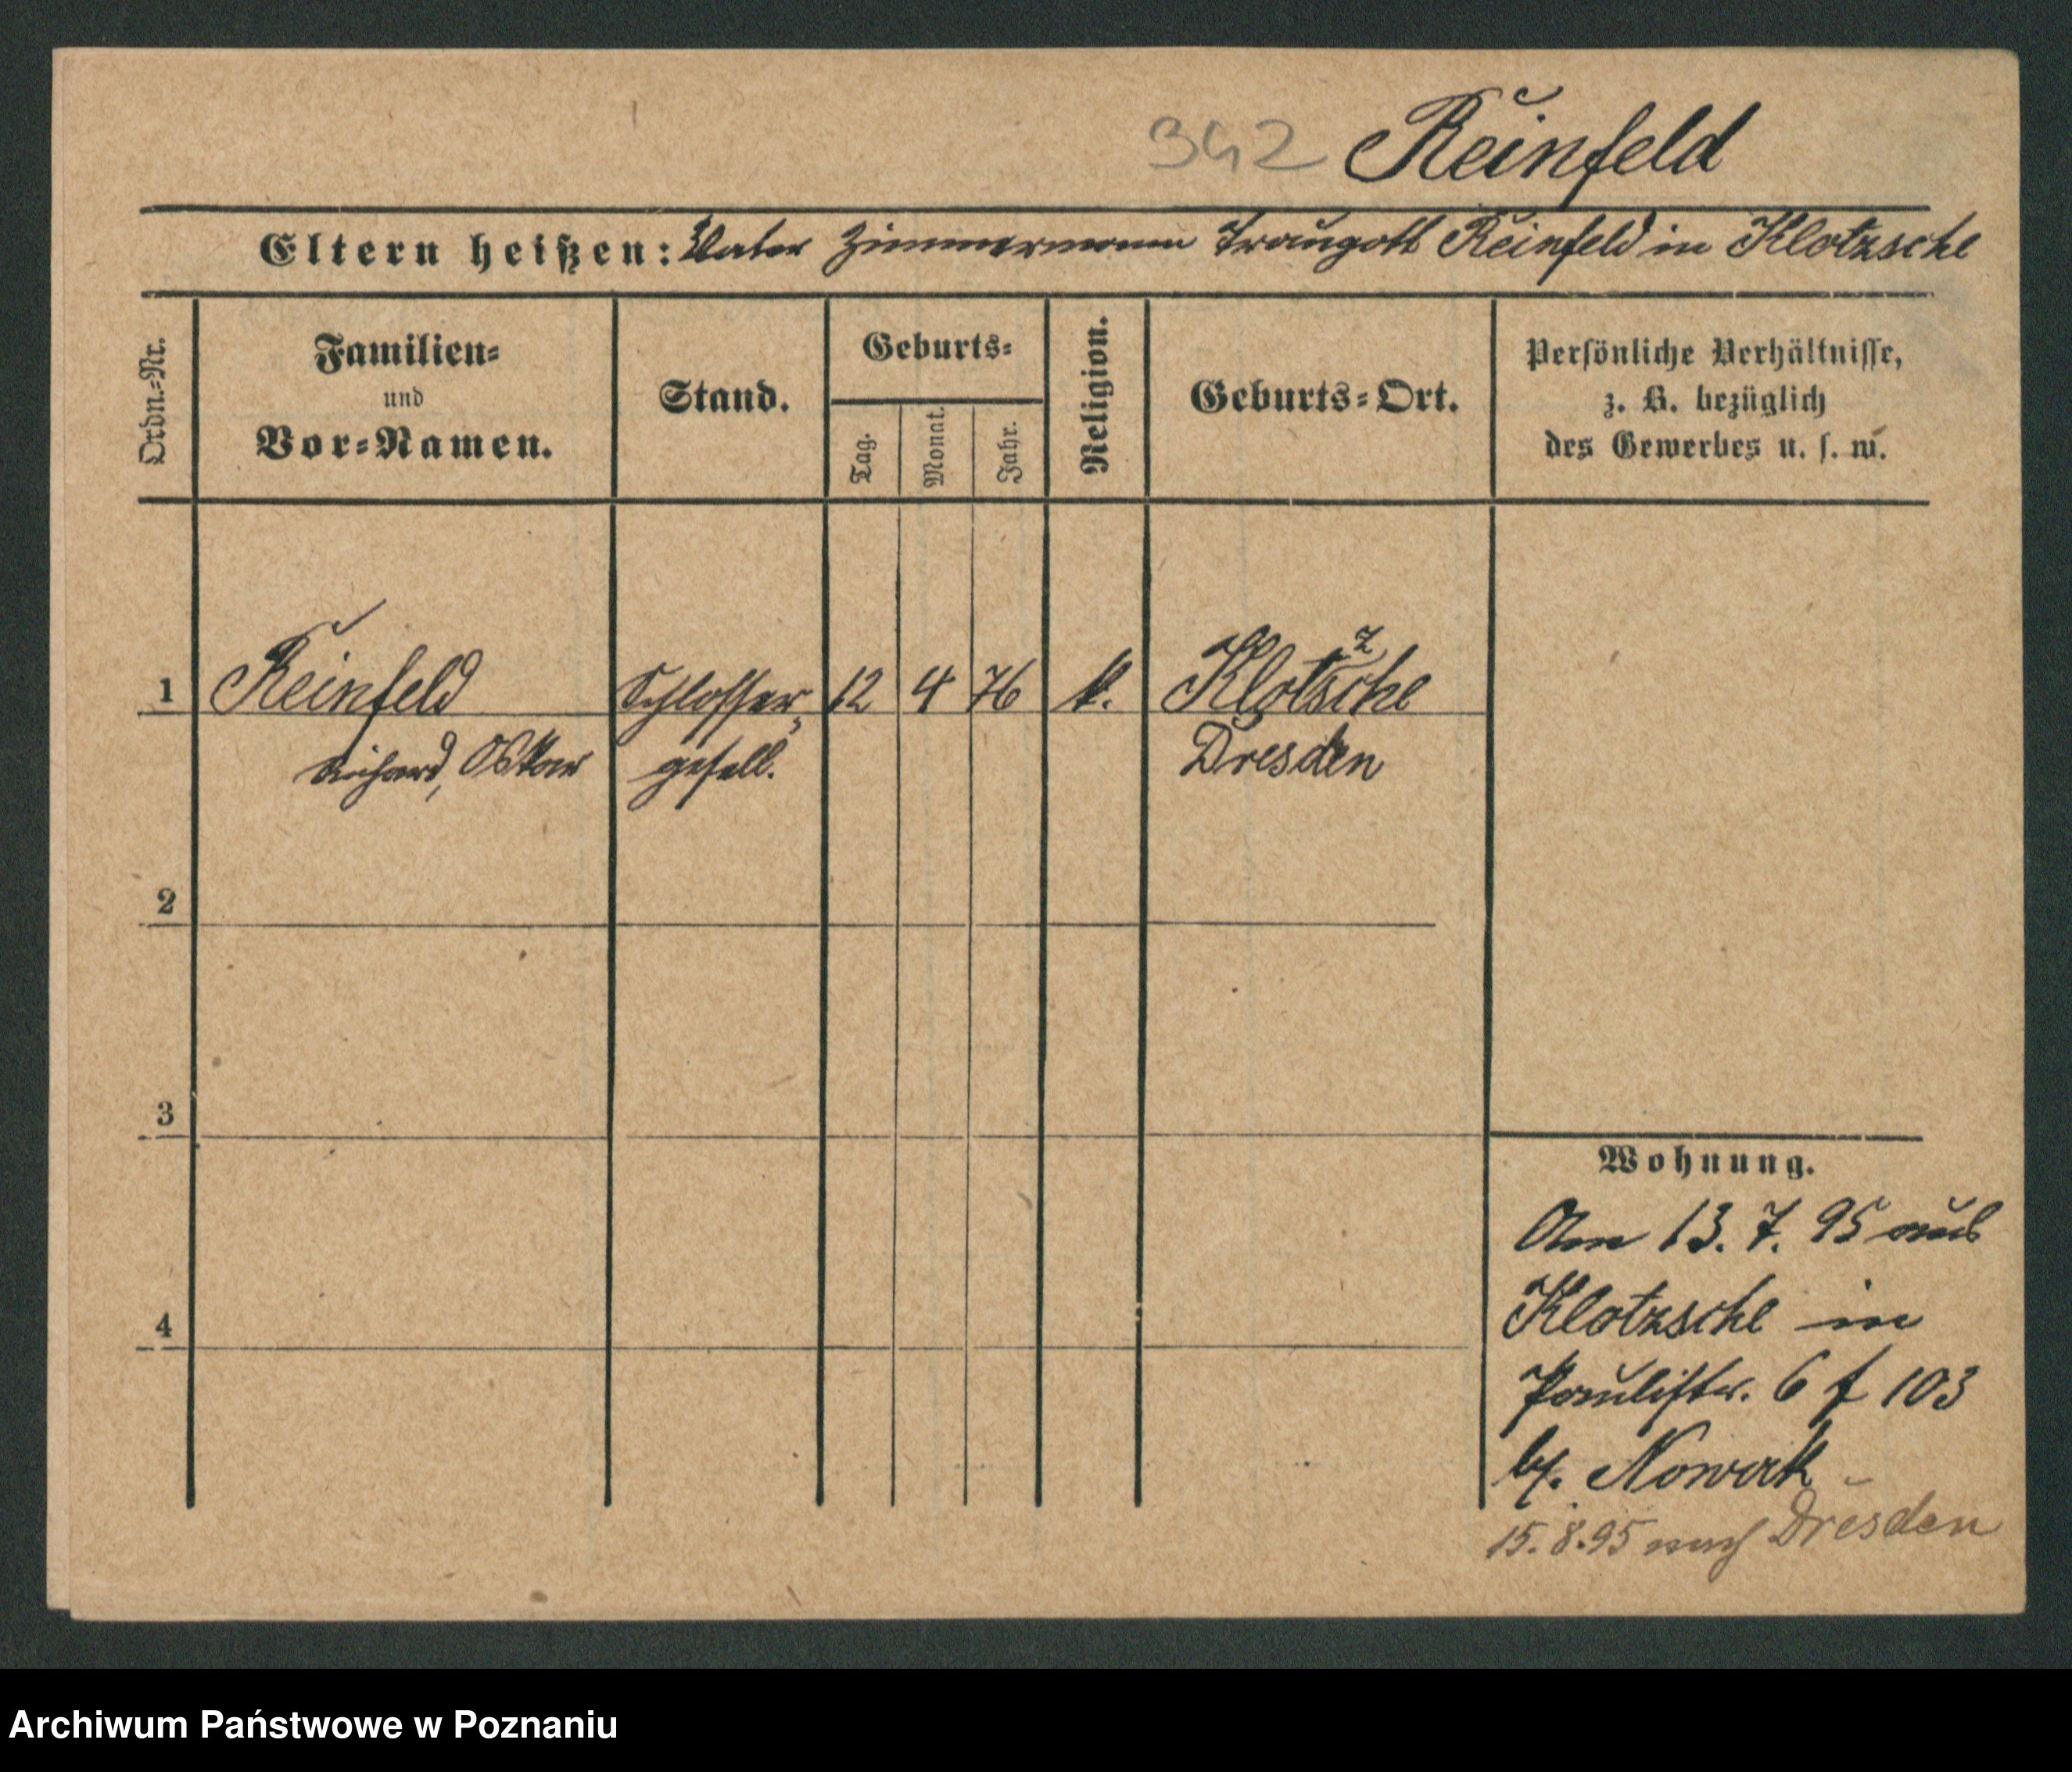 342 Reinfeld
Eltern heißen: Vater Zimmermann Traugott Reinfeld in Klotzsche
Ordn.-Nr.
Familien-
und
Vor-Namen.
Stand.
Geburts-
Tag.
Monat.
Jahr.
Religion.
Geburts-Ort.
Persönliche Verhältnisse,
z. B. bezüglich
des Gewerbes u. s. w.
1 Reinfeld Schlosser- 12 4 76 k. Klotzsche
Richard, Oskar gesell. Dresden
2
3
4
Wohnung.
Am 13. 7. 95 aus
Klotzsche in
Paulistr. 6 f 103
by. Nowak
15. 8. 95 nach Dresden
Archiwum Państwowe w Poznaniu